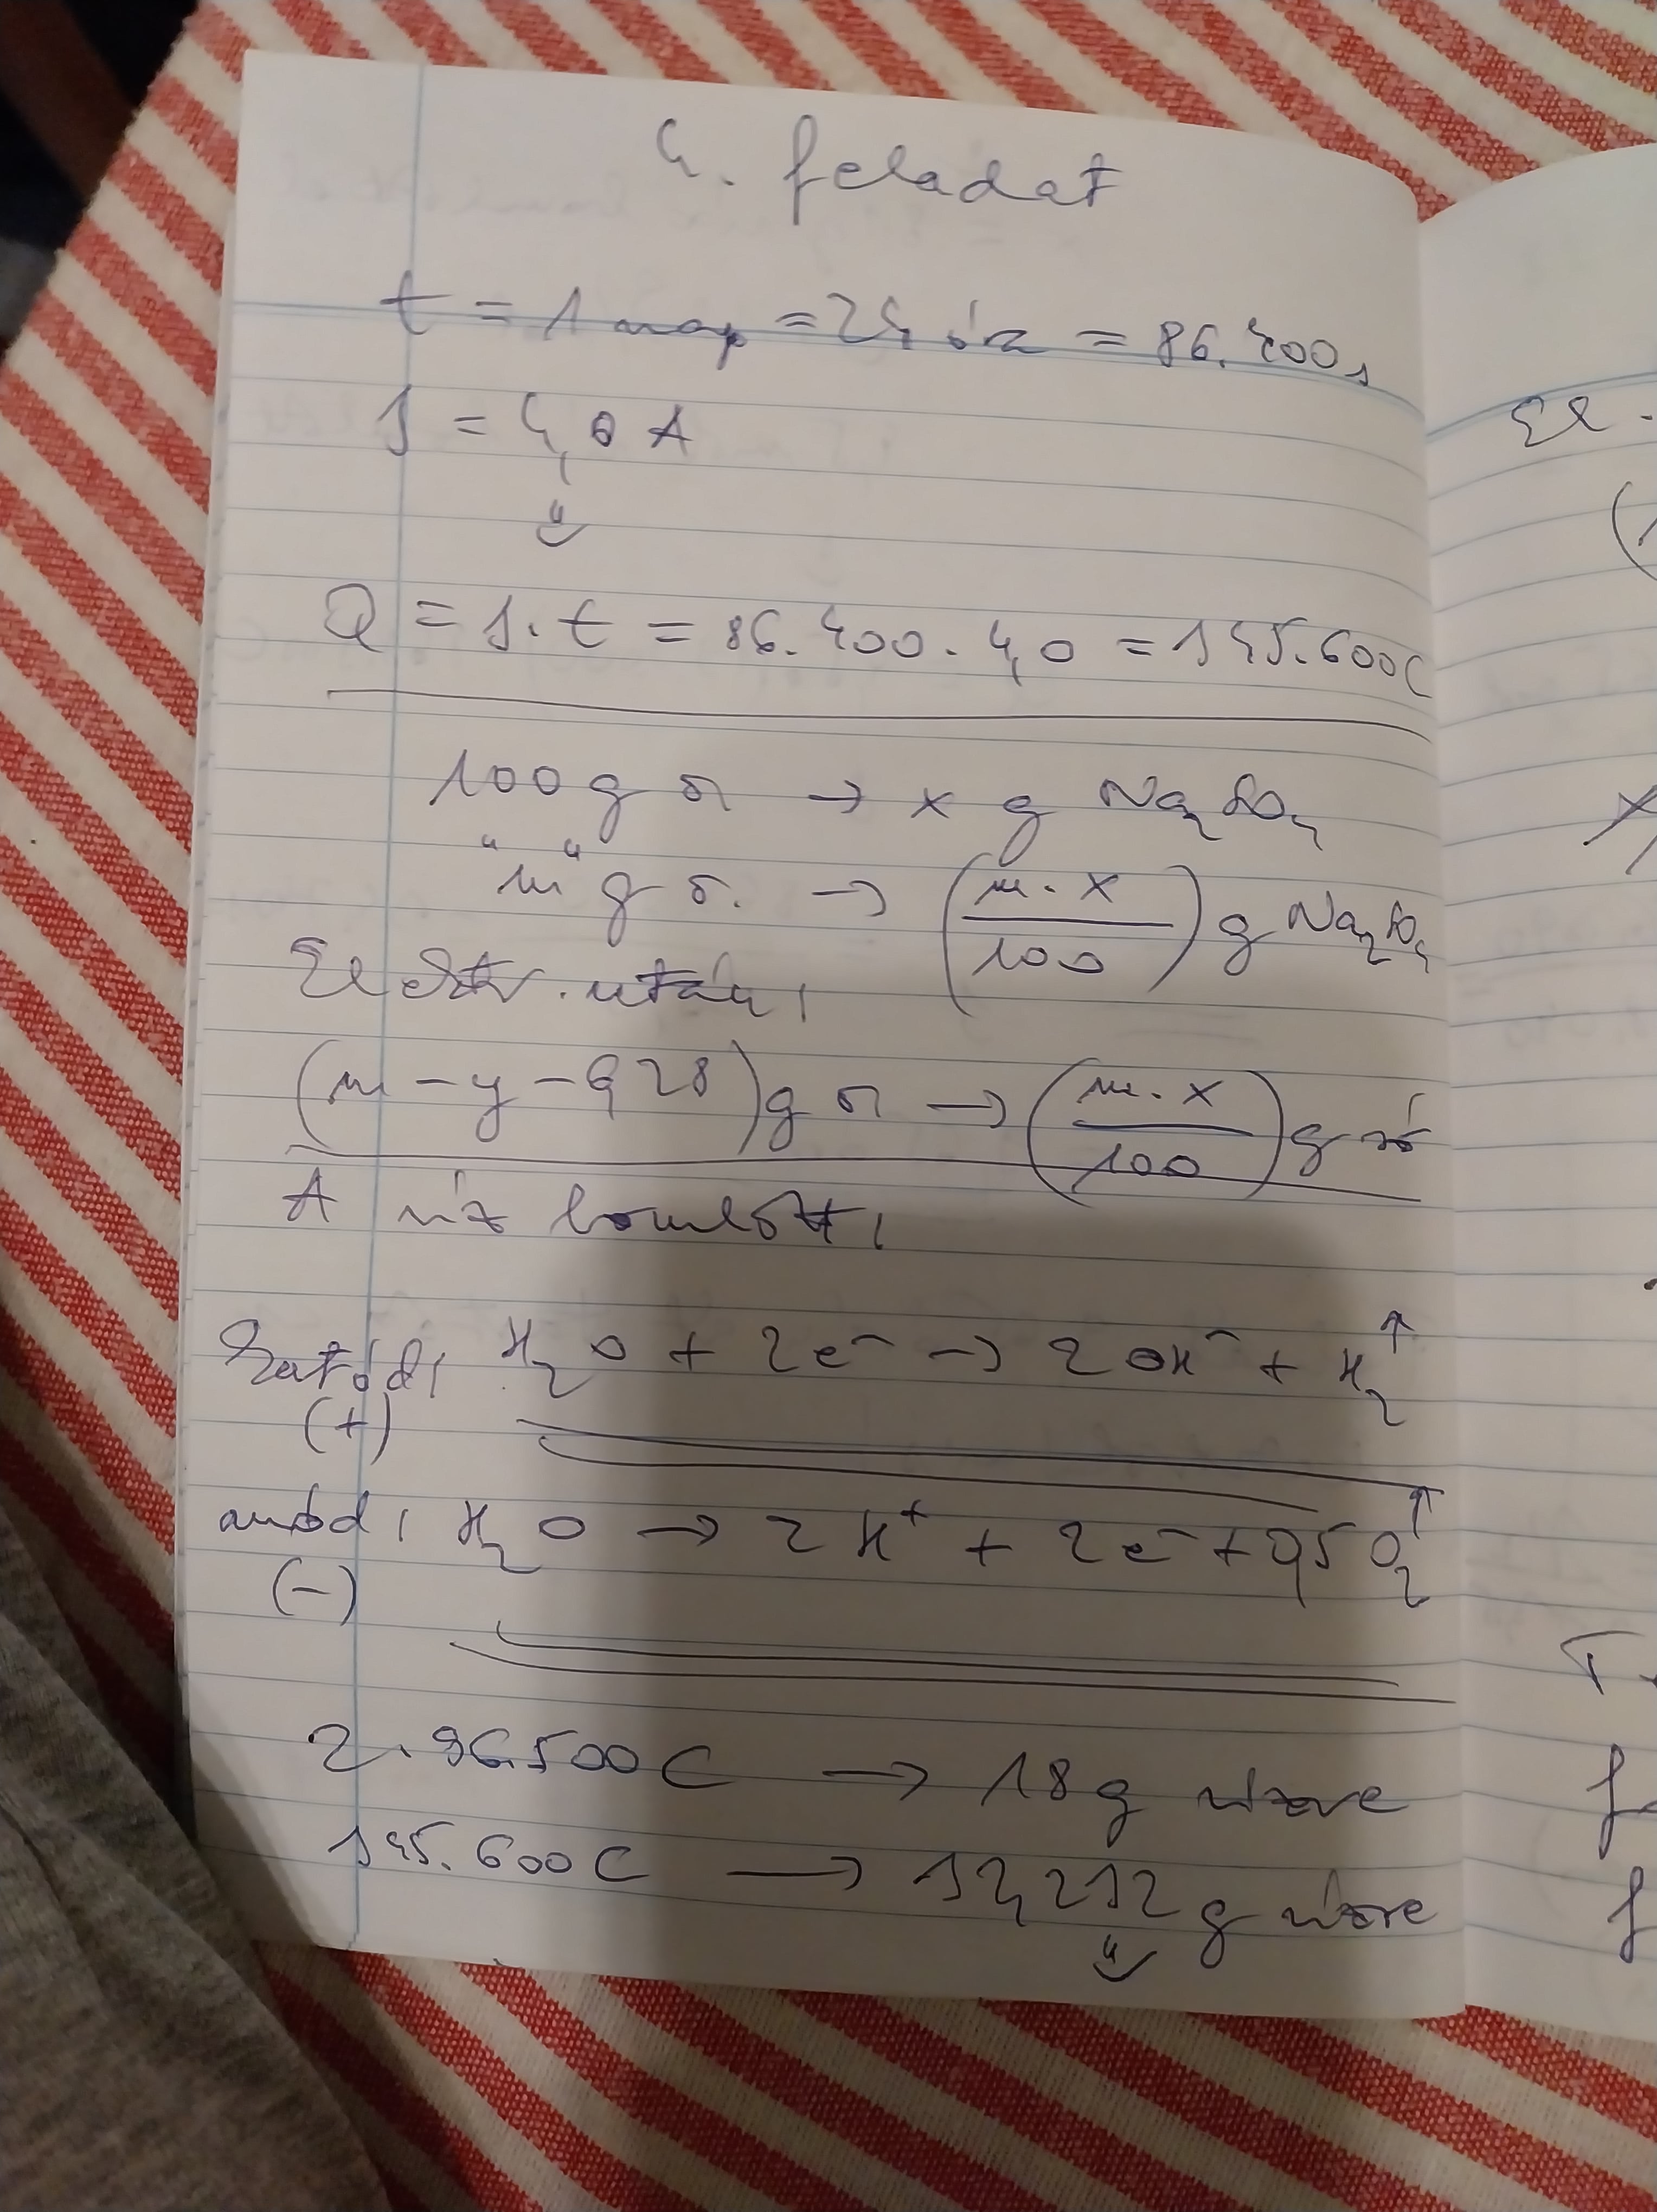 4. feladat
t = 1 nap = 24 óra = 86.400 s
I = 4,0 A
Q = I.t = 86.400 . 4,0 = 345.600 C
100 g o. → x g Na2SO4
"m" g o. → (m . x / 100) g Na2SO4
Elektr. után:
(m - y - 9,28) g o. → (m . x / 100) g só
A víz bomlott:
Katód: H2O + 2e- → 2 OH- + H2↑
(+)
anód: H2O → 2 H+ + 2e- + 0,5 O2↑
(-)
2.96.500 C → 18 g vízre
345.600 C → 32,232 g vízre
El.